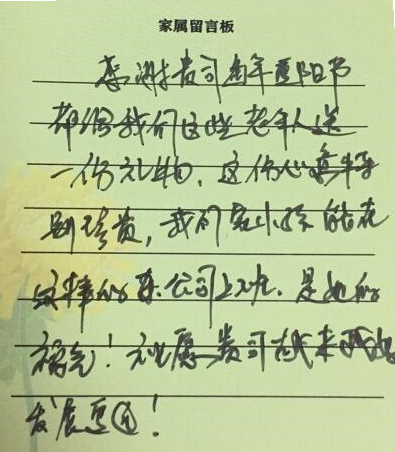 家属留言板
感谢贵司每年重阳节
都给我们这些老年人送
一份礼物，这份心意特
别珍贵，我们家小孩能在
这样的公司上班，是她的
福气！祝愿贵司未来
发展更